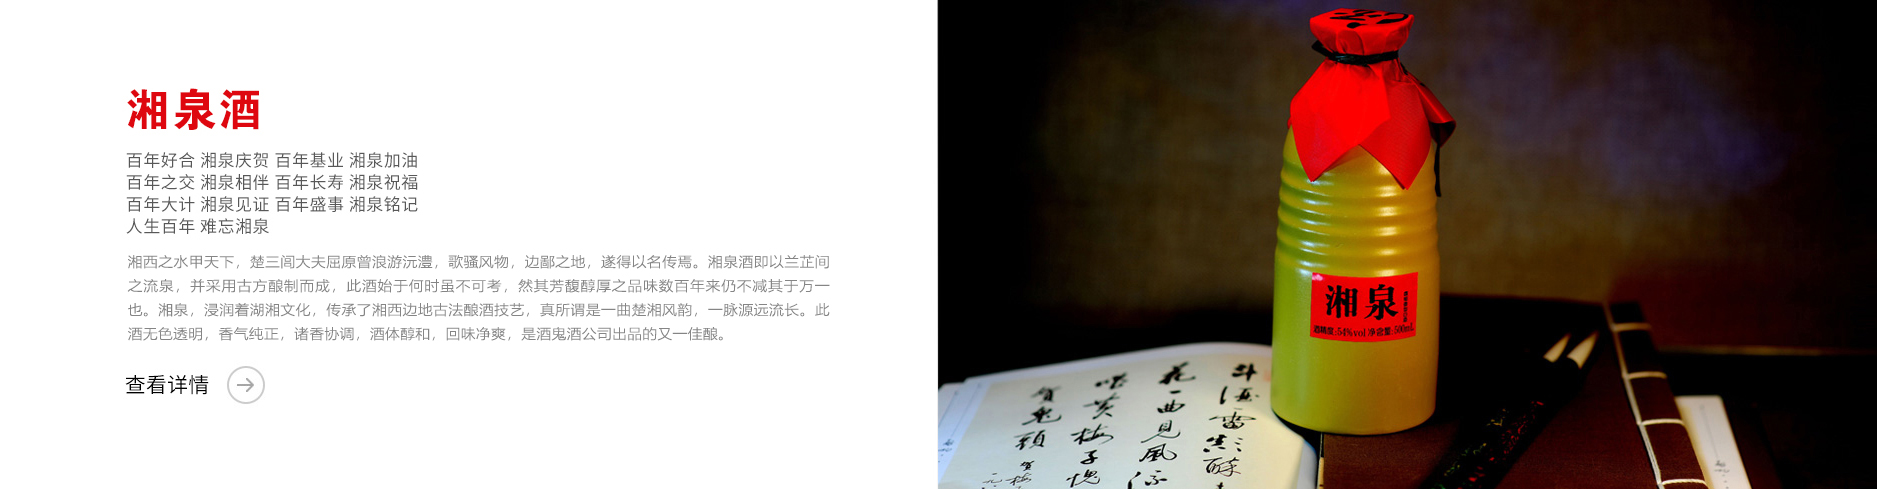 湘泉酒
百年好合 湘泉庆贺 百年基业 湘泉加油
百年之交 湘泉相伴 百年长寿 湘泉祝福
百年大计 湘泉见证 百年盛事 湘泉铭记
人生百年 难忘湘泉
湘西之水甲天下，楚三闾大夫屈原曾浪游沅澧，歌骚风物，边鄙之地，遂得以名传焉。湘泉酒即以兰芷间
之流泉，并采用古方酿制而成，此酒始于何时虽不可考，然其芳馥醇厚之品味数百年来仍不减其于万一
也。湘泉，浸润着湖湘文化，传承了湘西边地古法酿酒技艺，真所谓是一曲楚湘风韵，一脉源远流长。此
酒无色透明，香气纯正，诸香协调，酒体醇和，回味净爽，是酒鬼酒公司出品的又一佳酿。
查看详情
湘泉
酒精度:54%vol 净含量:500mL